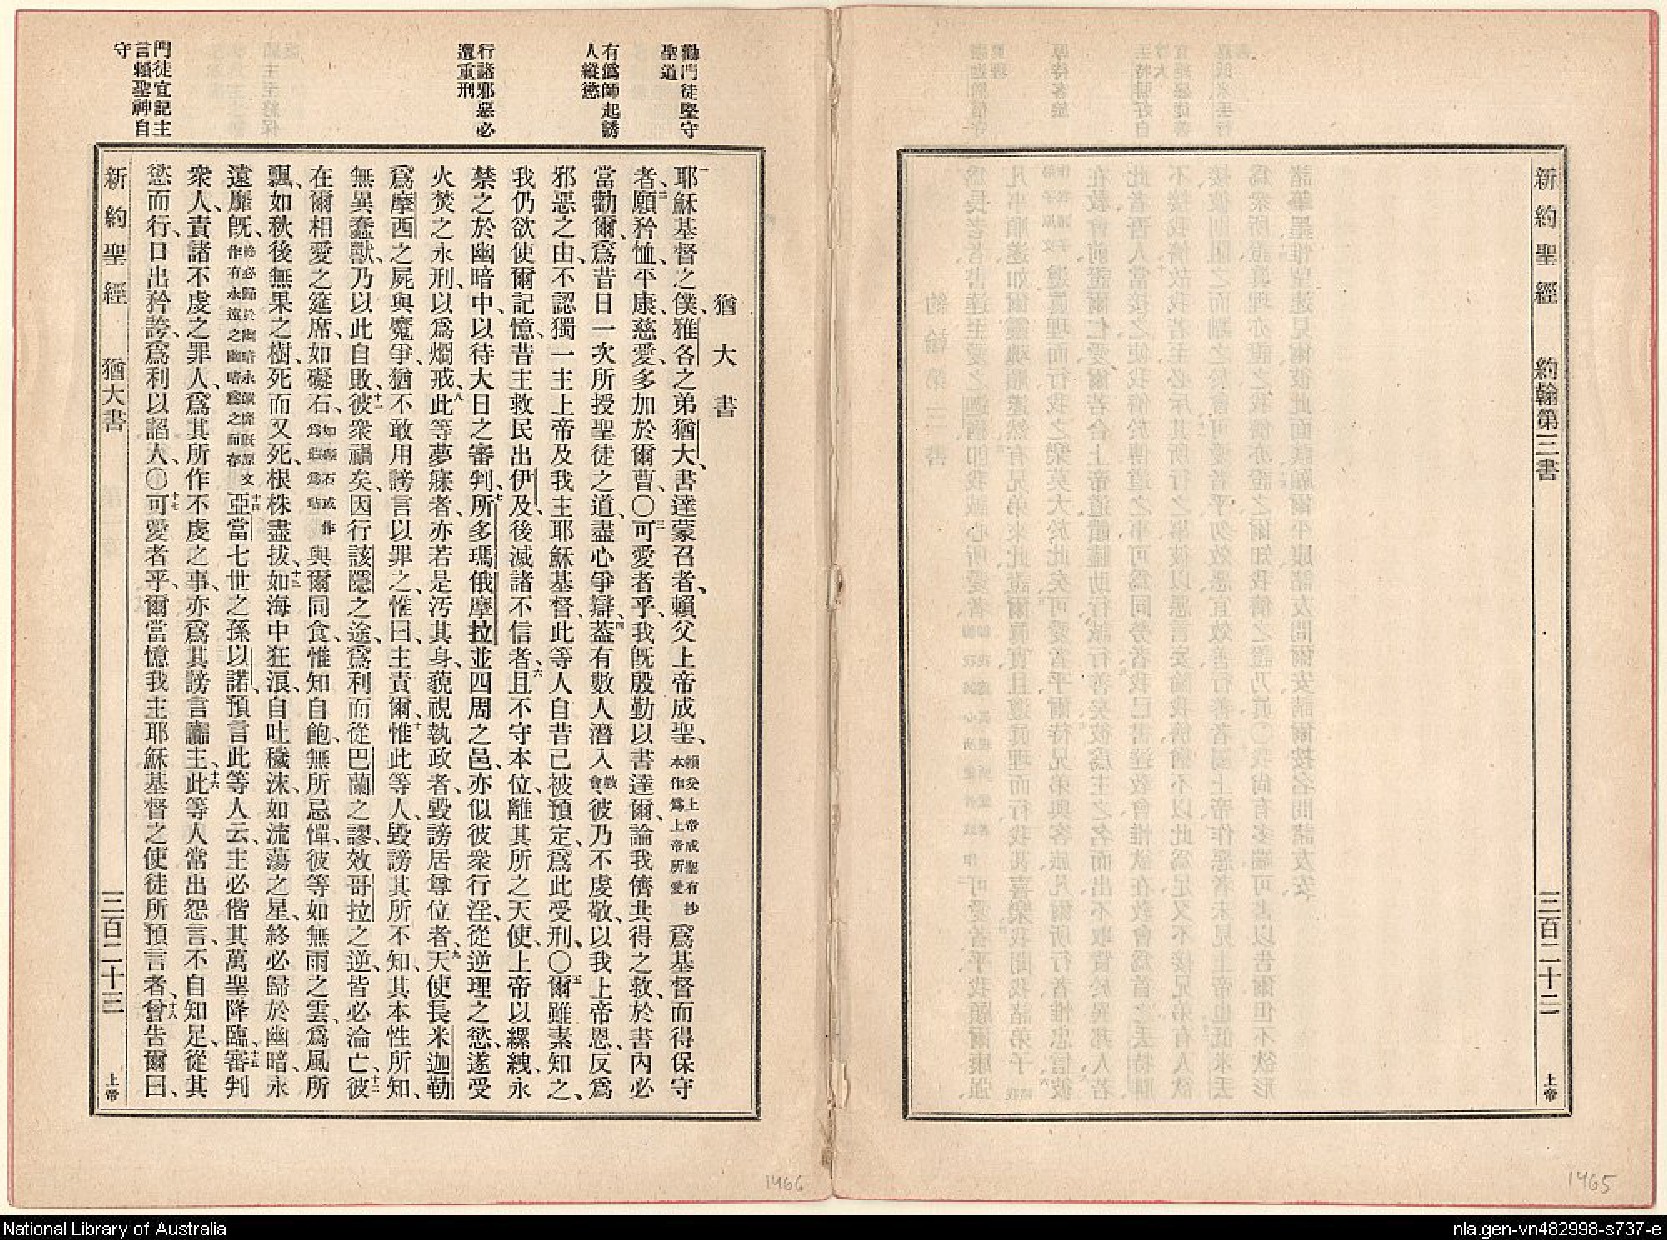 新約聖經 約翰第三書 三百二十二 上帝
1465
勸門徒堅守
聖道
有僞師起誘
人縱慾
行諸邪惡必
遭重刑
門徒宜記主
言賴聖神自
守
猶大書
一耶穌基督之僕雅各之弟猶大書達蒙召者、賴父上帝成聖、賴父上帝成聖有抄本作爲上帝所愛爲基督而得保守
者、二願矜恤平康慈愛、多加於爾曹○三可愛者乎、我旣殷勤以書達爾、論我儕共得之救、於書內必
當勸爾、爲昔日一次所授聖徒之道、盡心爭辯、四蓋有數人潛入教會彼乃不虔敬、以我上帝恩、反爲
邪惡之由、不認獨一主上帝及我主耶穌基督、此等人自昔已被預定、爲此受刑、○五爾雖素知之、
我仍欲使爾記憶、昔主救民出伊及、後滅諸不信者、六且不守本位、離其所之天使、上帝以縲絏、永
禁之於幽暗中、以待大日之審判、七所多瑪俄摩拉並四周之邑、亦似彼衆行淫、從逆理之慾、遂受
火焚之永刑、以爲烱戒、八此等夢寐者、亦若是污其身、藐視執政者、毀謗居尊位者、九天使長米迦勒
爲摩西之屍與魔爭、猶不敢用謗言以罪之、惟曰、主責爾、十惟此等人、毀謗其所不知、其本性所知、
無異蠢獸、乃以此自敗、十一彼衆禍矣、因行該隱之途、爲利而從巴蘭之謬、效哥拉之逆、皆必淪亡、十二彼
在爾相愛之筵席、如礙石、如礙石或作爲玷與爾同食、惟知自飽、無所忌憚、彼等如無雨之雲、爲風所
飄、如秋後無果之樹、死而又死、根株盡拔、十三如海中狂浪、自吐穢沫、如流蕩之星、終必歸於幽暗、永
遠靡旣、終必歸於幽暗永遠靡旣原文作有永遠之幽暗爲之而存十四亞當七世之孫以諾、預言此等人云、主必偕其萬聖降臨、十五審判
衆人、責諸不虔之罪人、爲其所作不虔之事、亦爲其謗言讟主、十六此等人常出怨言、不自知足、從其
慾而行、口出矜誇、爲利以諂人、○十七可愛者乎、爾當憶我主耶穌基督之使徒所預言者、十八曾告爾曰、
新約聖經 猶大書 三百二十三 上帝
1466
National Library of Australia
nla.gen-vn482998-s737-e